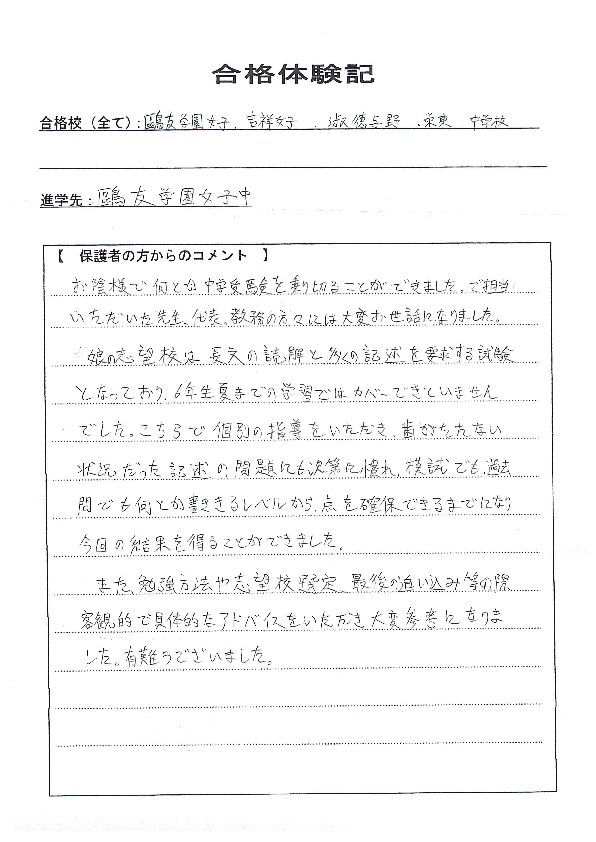 合格体験記
合格校（全て）：鷗友学園女子、吉祥女子、淑徳与野、栄東 中学校
進学先：鷗友学園女子中
【 保護者の方からのコメント 】
お陰様で何とか中学受験を乗り切ることができました。ご担当
いただいた先生、代表、教務の方々には大変お世話になりました。
娘の志望校は長文の読解と多くの記述を要求する試験
となっており、6年生夏までの学習ではカバーできていません
でした。こちらで個別の指導をいただき、歯がたたない
状況だった記述の問題にも次第に慣れ、模試でも、過去
問でも何とか書ききるレベルから、点を確保できるまでになり
今回の結果を得ることができました。
また、勉強方法や志望校選定、最後の追い込み等の際
客観的で具体的なアドバイスをいただき大変参考になりま
した。有難うございました。